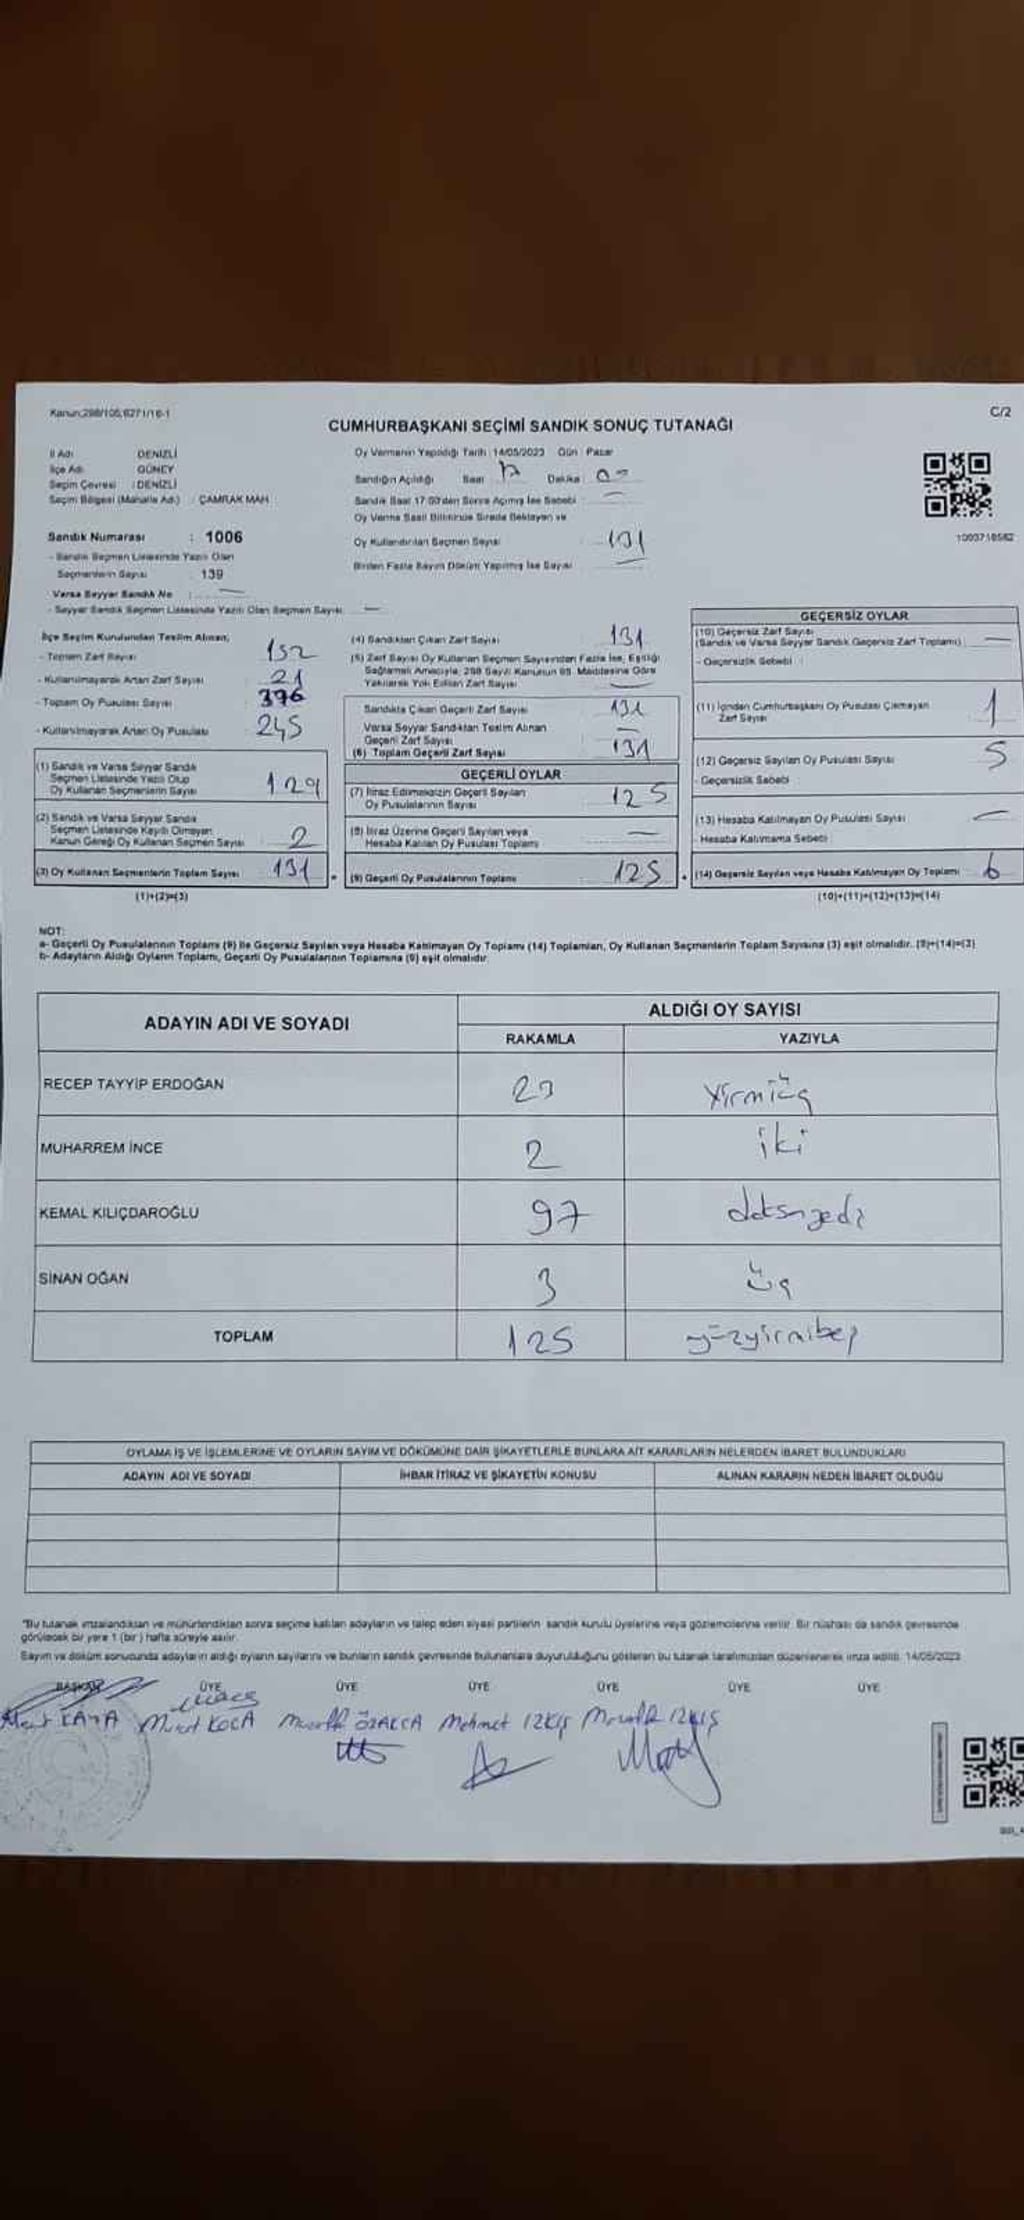 Kanun:298/105,6271/16-1
C/2
CUMHURBAŞKANI SEÇİMİ SANDIK SONUÇ TUTANAĞI
İl Adı DENİZLİ
İlçe Adı GÜNEY
Seçim Çevresi : DENİZLİ
Seçim Bölgesi (Mahalle Adı) : ÇAMRAK MAH
Oy Vermenin Yapıldığı Tarih : 14/05/2023 Gün : Pazar
Sandığın Açıldığı Saat Dakika
Sandık Saat 17:00'den Sonra Açılmış İse Sebebi
Oy Verme Saati Bitiminde Sırada Bekleyen ve
Oy Kullandırılan Seçmen Sayısı 131
Birden Fazla Sayım Döküm Yapılmış İse Sayısı
1003718562
Sandık Numarası : 1006
- Sandık Seçmen Listesinde Yazılı Olan
Seçmenlerin Sayısı 139
Varsa Seyyar Sandık No : —
- Seyyar Sandık Seçmen Listesinde Yazılı Olan Seçmen Sayısı —
İlçe Seçim Kurulundan Teslim Alınan;
- Toplam Zarf Sayısı 152
- Kullanılmayarak Artan Zarf Sayısı 21
- Toplam Oy Pusulası Sayısı 376
- Kullanılmayarak Artan Oy Pusulası 245
(1) Sandık ve Varsa Seyyar Sandık
Seçmen Listesinde Yazılı Olup
Oy Kullanan Seçmenlerin Sayısı 129
(2) Sandık ve Varsa Seyyar Sandık
Seçmen Listesinde Kayıtlı Olmayan
Kanun Gereği Oy Kullanan Seçmen Sayısı 2
(3) Oy Kullanan Seçmenlerin Toplam Sayısı 131
(1)+(2)=(3)
(4) Sandıktan Çıkan Zarf Sayısı 131
(5) Zarf Sayısı Oy Kullanan Seçmen Sayısından Fazla İse, Eşitliği
Sağlamak Amacıyla, 298 Sayılı Kanunun 98. Maddesine Göre
Yakılarak Yok Edilen Zarf Sayısı —
Sandıkta Çıkan Geçerli Zarf Sayısı 131
Varsa Seyyar Sandıktan Teslim Alınan
Geçerli Zarf Sayısı —
(6) Toplam Geçerli Zarf Sayısı 131
GEÇERLİ OYLAR
(7) İtiraz Edilmeksizin Geçerli Sayılan
Oy Pusulalarının Sayısı 125
(8) İtiraz Üzerine Geçerli Sayılan veya
Hesaba Katılan Oy Pusulası Toplamı —
(9) Geçerli Oy Pusulalarının Toplamı 125
GEÇERSİZ OYLAR
(10) Geçersiz Zarf Sayısı
(Sandık ve Varsa Seyyar Sandık Geçersiz Zarf Toplamı) —
- Geçersizlik Sebebi :
(11) İçinden Cumhurbaşkanı Oy Pusulası Çıkmayan
Zarf Sayısı 1
(12) Geçersiz Sayılan Oy Pusulası Sayısı 5
- Geçersizlik Sebebi
(13) Hesaba Katılmayan Oy Pusulası Sayısı —
- Hesaba Katılmama Sebebi :
(14) Geçersiz Sayılan veya Hesaba Katılmayan Oy Toplamı 6
(10)+(11)+(12)+(13)=(14)
NOT:
a- Geçerli Oy Pusulalarının Toplamı (9) ile Geçersiz Sayılan veya Hesaba Katılmayan Oy Toplamı (14) Toplamları, Oy Kullanan Seçmenlerin Toplam Sayısına (3) eşit olmalıdır. (9)+(14)=(3)
b- Adayların Aldığı Oyların Toplamı, Geçerli Oy Pusulalarının Toplamına (9) eşit olmalıdır.
ADAYIN ADI VE SOYADI
ALDIĞI OY SAYISI
RAKAMLA YAZIYLA
RECEP TAYYİP ERDOĞAN 23 Yirmiüç
MUHARREM İNCE 2 iki
KEMAL KILIÇDAROĞLU 97 doksanyedi
SİNAN OĞAN 3 üç
TOPLAM 125 yüzyirmibeş
OYLAMA İŞ VE İŞLEMLERİNE VE OYLARIN SAYIM VE DÖKÜMÜNE DAİR ŞİKAYETLERLE BUNLARA AİT KARARLARIN NELERDEN İBARET BULUNDUKLARI
ADAYIN ADI VE SOYADI İHBAR İTİRAZ VE ŞİKAYETİN KONUSU ALINAN KARARIN NEDEN İBARET OLDUĞU
"Bu tutanak imzalandıktan ve mühürlendikten sonra seçime katılan adayların ve talep eden siyasi partilerin sandık kurulu üyelerine veya gözlemcilerine verilir. Bir nüshası da sandık çevresinde
görülecek bir yere 1 (bir) hafta süreyle asılır.
Sayım ve döküm sonucunda adayların aldığı oyların sayılarını ve bunların sandık çevresinde bulunanlara duyurulduğunu gösteren bu tutanak tarafımızdan düzenlenerek imza edildi. 14/05/2023
BAŞKAN ÜYE ÜYE ÜYE ÜYE ÜYE ÜYE
KAYA Murat KOCA ÖZAKCA Mehmet IZKIŞ IZKIŞ